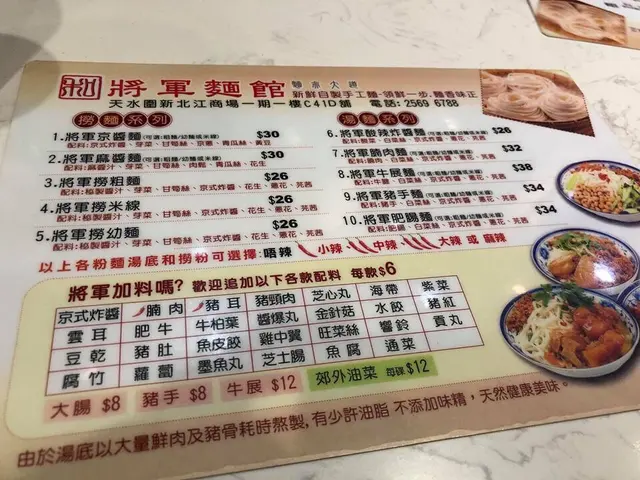 將軍麵館 麵泰大道
新鮮自製手工麵-領鮮一步. 麵香味正
天水圍新北江商場一期一樓C41D舖 電話: 2569 6788
撈麵系列
1.將軍京醬麵(可選:粗麵/幼麵或米線) $30
配料:京式炸醬、芽菜、甘筍絲、京蔥、青瓜絲、黃豆
2.將軍麻醬麵(可選:粗麵/幼麵或米線) $30
配料:麻醬汁、芽菜、甘筍絲、肉鬆、青瓜絲、花生
3.將軍撈粗麵 $26
配料:秘製醬汁、芽菜、甘筍絲、京式炸醬、花生、蔥花、芫茜
4.將軍撈米線 $26
配料:秘製醬汁、芽菜、甘筍絲、京式炸醬、花生、蔥花、芫茜
5.將軍撈幼麵 $26
配料:秘製醬汁、芽菜、甘筍絲、京式炸醬、花生、蔥花、芫茜
湯麵系列
6.將軍酸辣炸醬麵(可選:粗麵/幼麵或米線) $26
7.將軍腩肉麵(可選:粗麵/幼麵或米線) $32
8.將軍牛展麵(可選:粗麵/幼麵或米線) $38
9.將軍豬手麵(可選:粗麵/幼麵或米線) $34
10.將軍肥腸麵(可選:粗麵/幼麵或米線) $34
以上各粉麵湯底和撈粉可選擇: 唔辣 小辣 中辣 大辣 或 麻辣
將軍加料嗎? 歡迎追加以下各款配料 每款$6
京式炸醬 腩肉 豬耳 豬頸肉 芝心丸 海帶 紫菜
雲耳 肥牛 牛柏葉 醬爆丸 金針菇 水餃 豬紅
豆乾 豬肚 魚皮餃 雞中翼 旺菜絲 響鈴 貢丸
腐竹 蘿蔔 墨魚丸 芝士腸 魚腐 通菜
大腸 $8 豬手 $8 牛展 $12 郊外油菜 每碟 $12
由於湯底以大量鮮肉及豬骨耗時熬製, 有少許油脂 不添加味精, 天然健康美味。